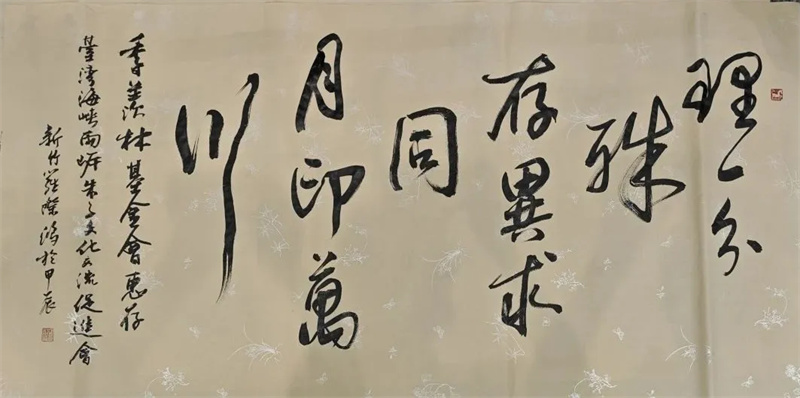 理一分
殊
存異求
同
月印萬
川
季羨林基金會惠存
臺灣海峽兩岸朱子文化交流促進會
新竹羅際鴻於甲辰